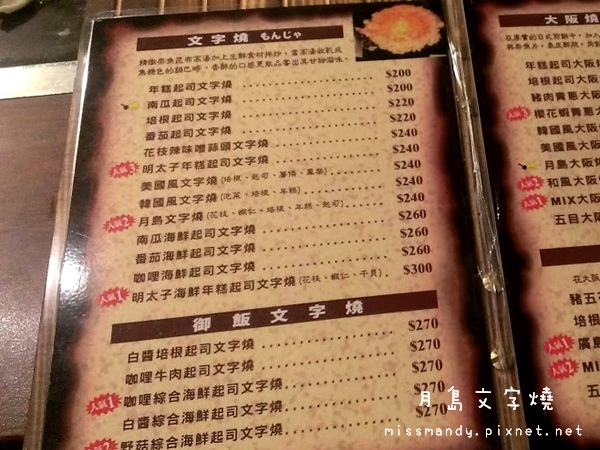 文字燒 もんじゃ
年糕起司文字燒 $200
南瓜起司文字燒 $200
培根起司文字燒 $220
番茄起司文字燒 $220
花枝辣味噌蒜頭文字燒 $240
人氣3 明太子年糕起司文字燒 $240
美國風文字燒(培根、起司、薯條、鳳梨) $240
韓國風文字燒(泡菜、培根、年糕) $240
人氣2 月島文字燒(花枝、蝦仁、培根、年糕、起司) $240
南瓜海鮮起司文字燒 $260
番茄海鮮起司文字燒 $260
咖哩海鮮起司文字燒 $260
人氣1 明太子海鮮年糕起司文字燒(花枝、蝦仁、干貝) $300
御飯文字燒
白醬培根起司文字燒 $270
咖哩牛肉起司文字燒 $270
人氣1 咖哩綜合海鮮起司文字燒 $270
白醬綜合海鮮起司文字燒 $270
人氣2 野菇綜合海鮮起司文字燒 $270
大阪燒
年糕起司大阪
培根起司大阪燒
豬肉青蔥大阪
人氣3 櫻花蝦青蔥大
韓國風大阪
美國風大阪
月島大阪燒
人氣2 和風大阪燒
人氣1 MIX大阪燒
五目大阪
豬五花
培根
人氣1 廣島
人氣2 MIX
月島文字燒
missmandy.pixnet.net